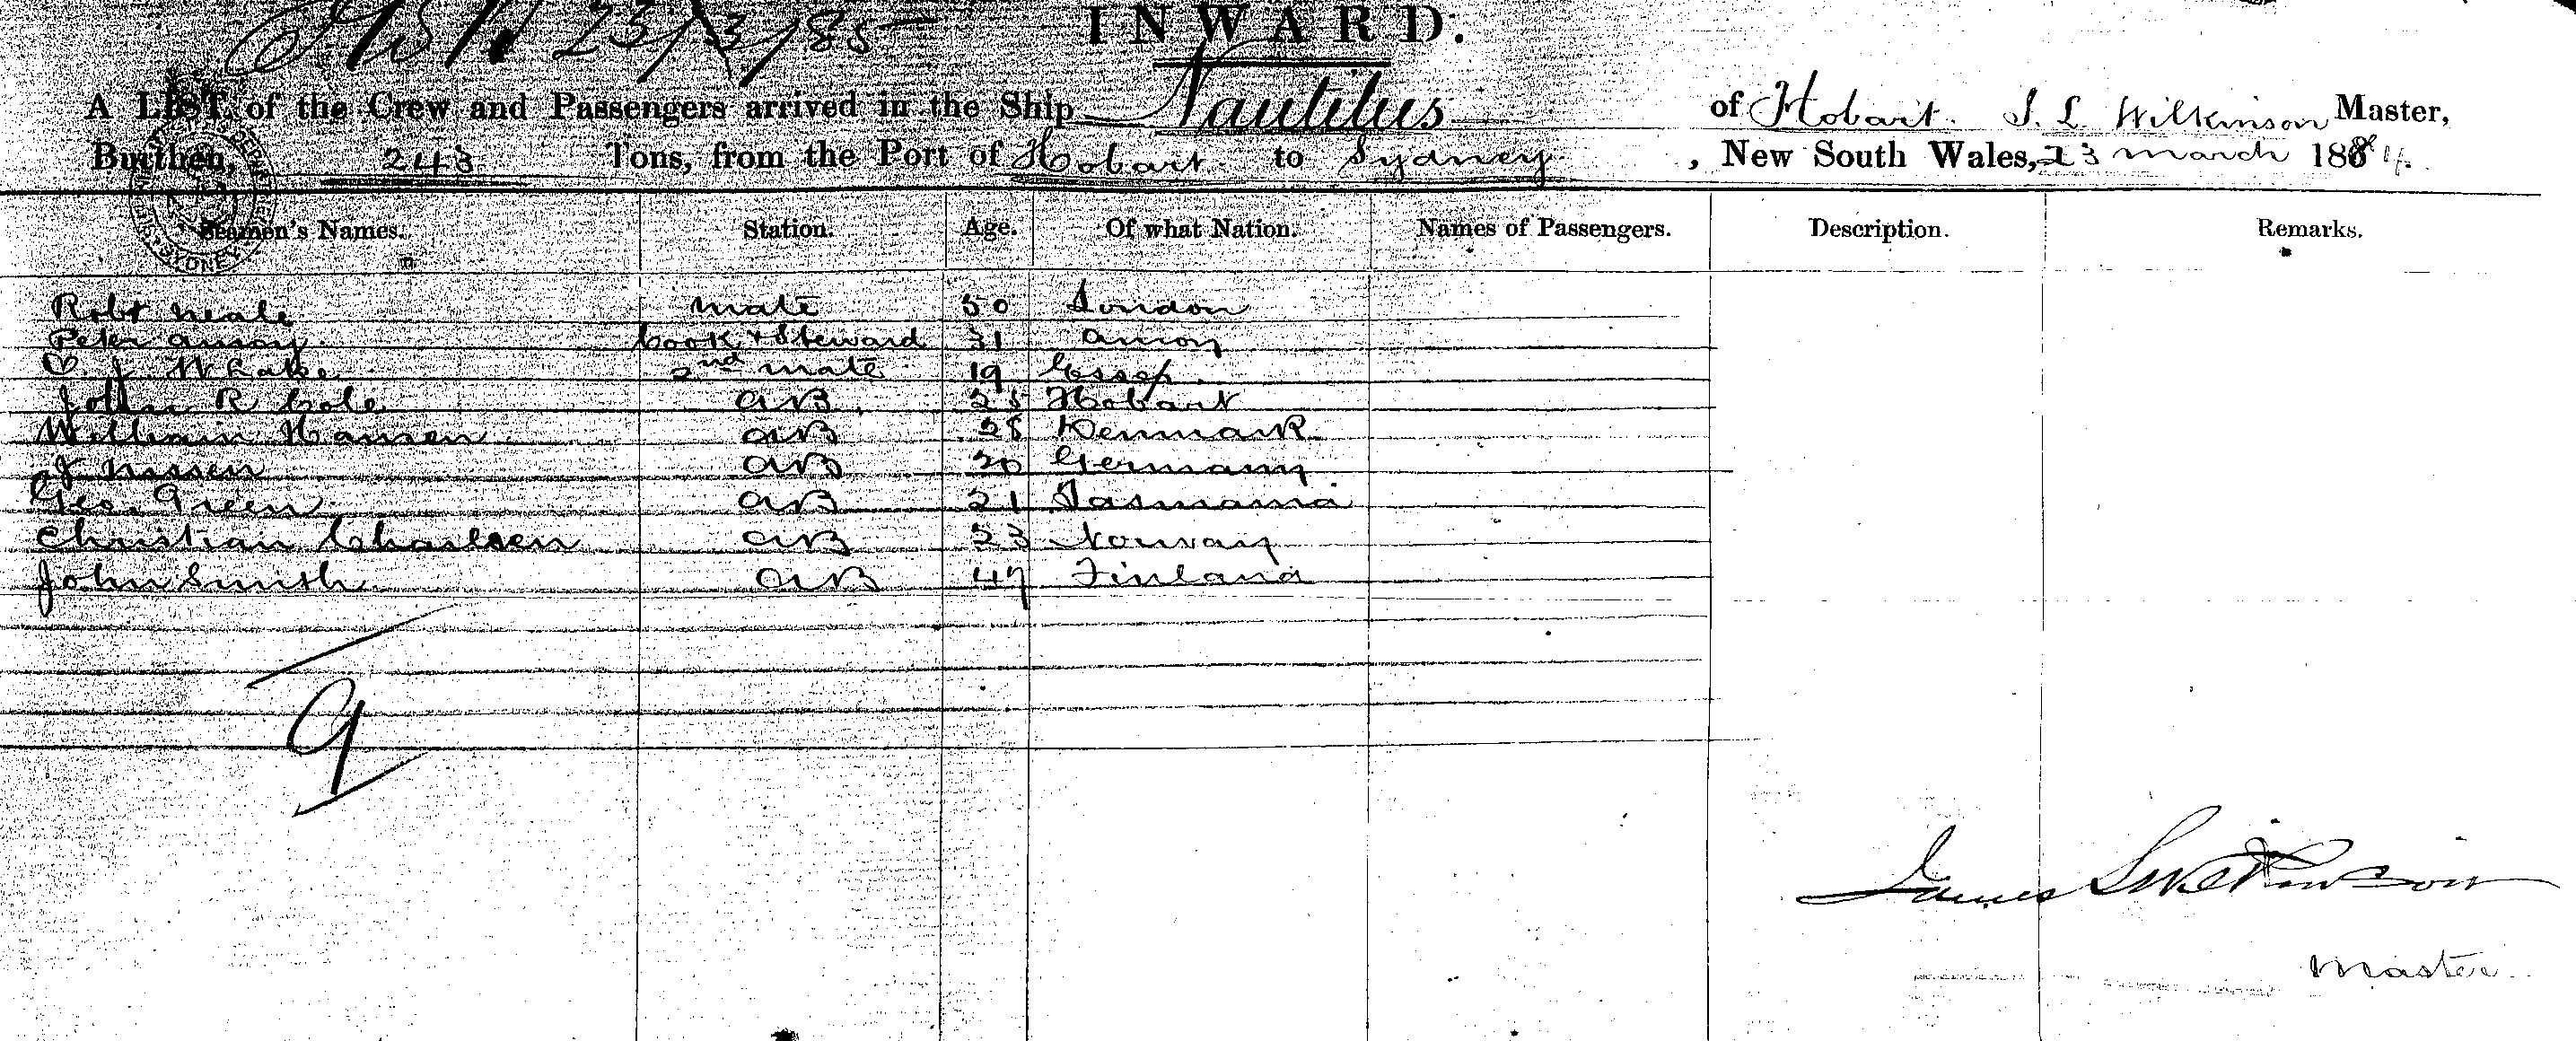 23/3/85
INWARD.
A LIST of the Crew and Passengers arrived in the Ship Nautilus of Hobart. J. L. Wilkinson Master,
Burthen, 243 Tons, from the Port of Hobart to Sydney, New South Wales, 23 march 188
Seamen's Names. Station. Age. Of what Nation. Names of Passengers. Description. Remarks.
Robt Neale mate 50 London
Peter amoy Cook & Steward 31 amoy
C. J. W Lake 2nd mate 19 Essex
John R Cole AB 25 Hobart
William Hansen AB 28 Denmark
J Nissen AB 20 Germany
Geo. Green AB 21 Tasmania
Christian Charlsen AB 23 Norway
John Smith AB 47 Finland
9
James L Wilkinson
Master